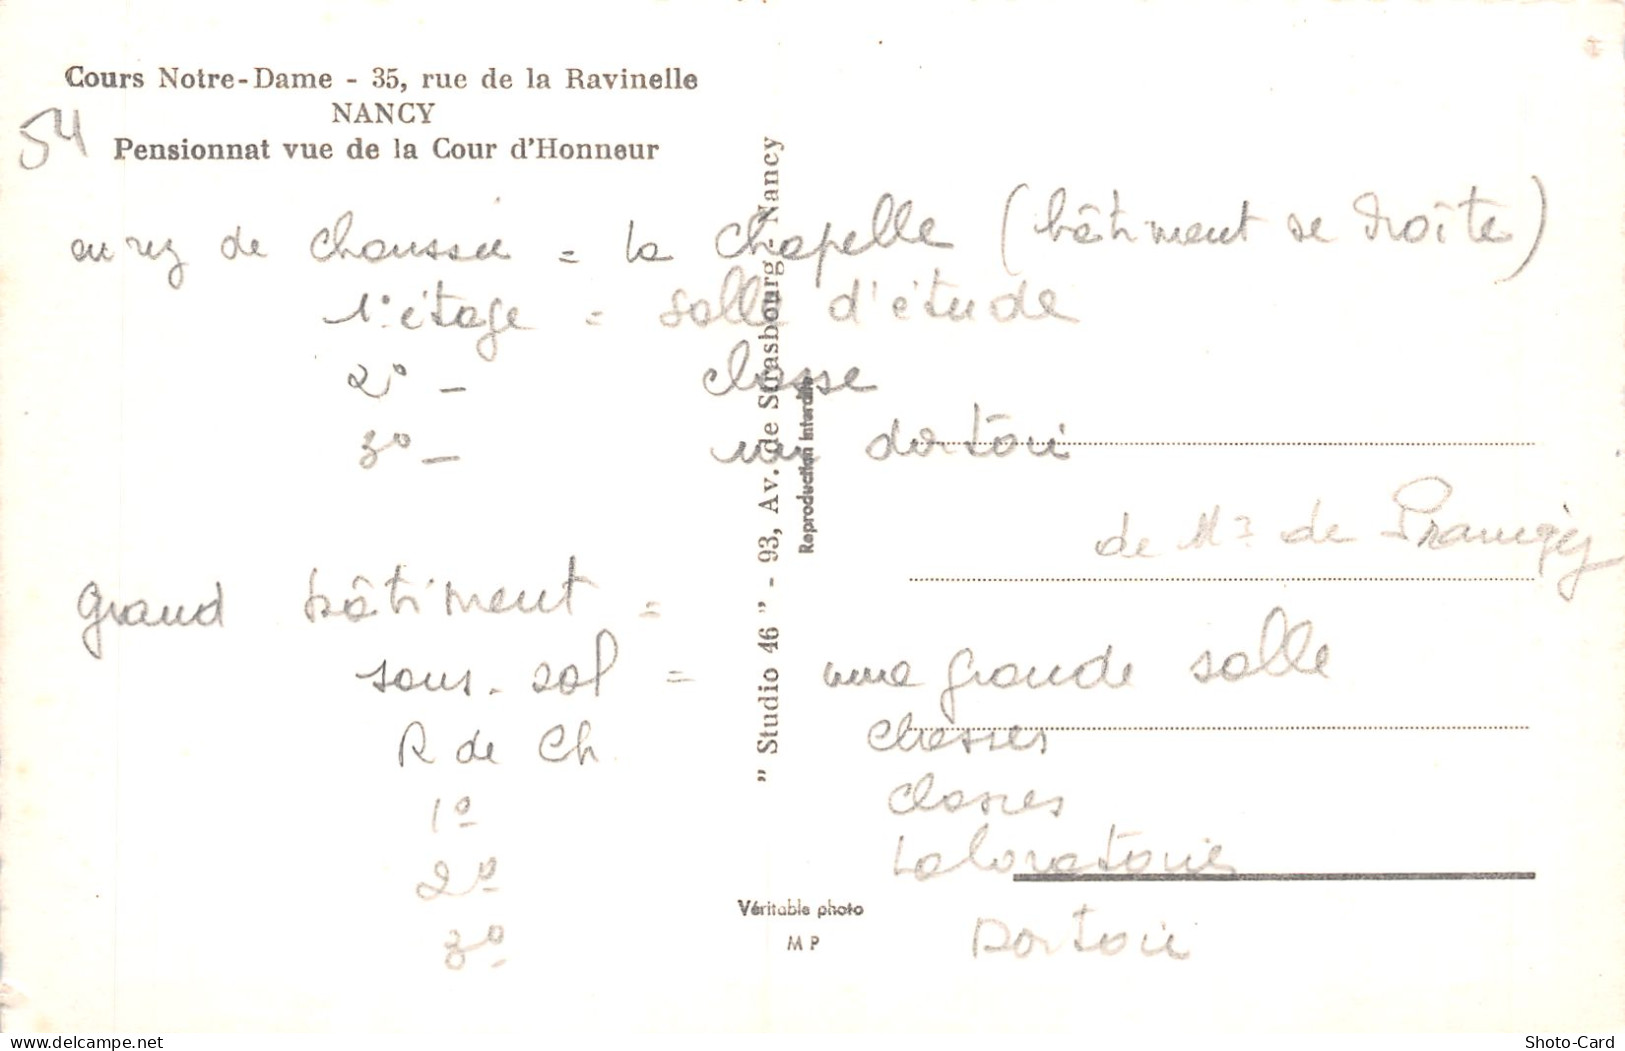 Cours Notre-Dame - 35, rue de la Ravinelle
NANCY
54
Pensionnat vue de la Cour d'Honneur
au rez de chaussée = la chapelle (bâtiment de droite)
1° étage = salle d'étude
2° - classe
3° - un dortoir
de Mr de
grand bâtiment =
sous-sol = une grande salle
R de Ch. classes
1° classes
2° Laboratoire
3° Dortoir
" Studio 46 " - 93, Av. de Strasbourg Nancy
Reproduction interdite
Véritable photo
M P
delcampe.net
Shoto-Card